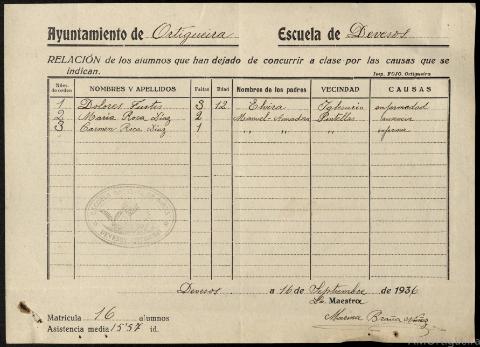 Ayuntamiento de Ortigueira Escuela de Devesos.
RELACIÓN de los alumnos que han dejado de concurrir a clase por las causas que se
indican.
Imp. FOJO. Ortigueira
Núm. de orden NOMBRES Y APELLIDOS Faltas Edad Nombres de los padres VECINDAD CAUSAS
1 Dolores 3 12 Elvira enfermedad
2 Maria Rosa Diaz 2 Manuel-Amadora
3 Carmen Roca Diaz 1 " " " enferma
Devesos a 16 de Septiembre de 1936
La Maestra
Matricula 16 alumnos
Asistencia media 15'57 id.